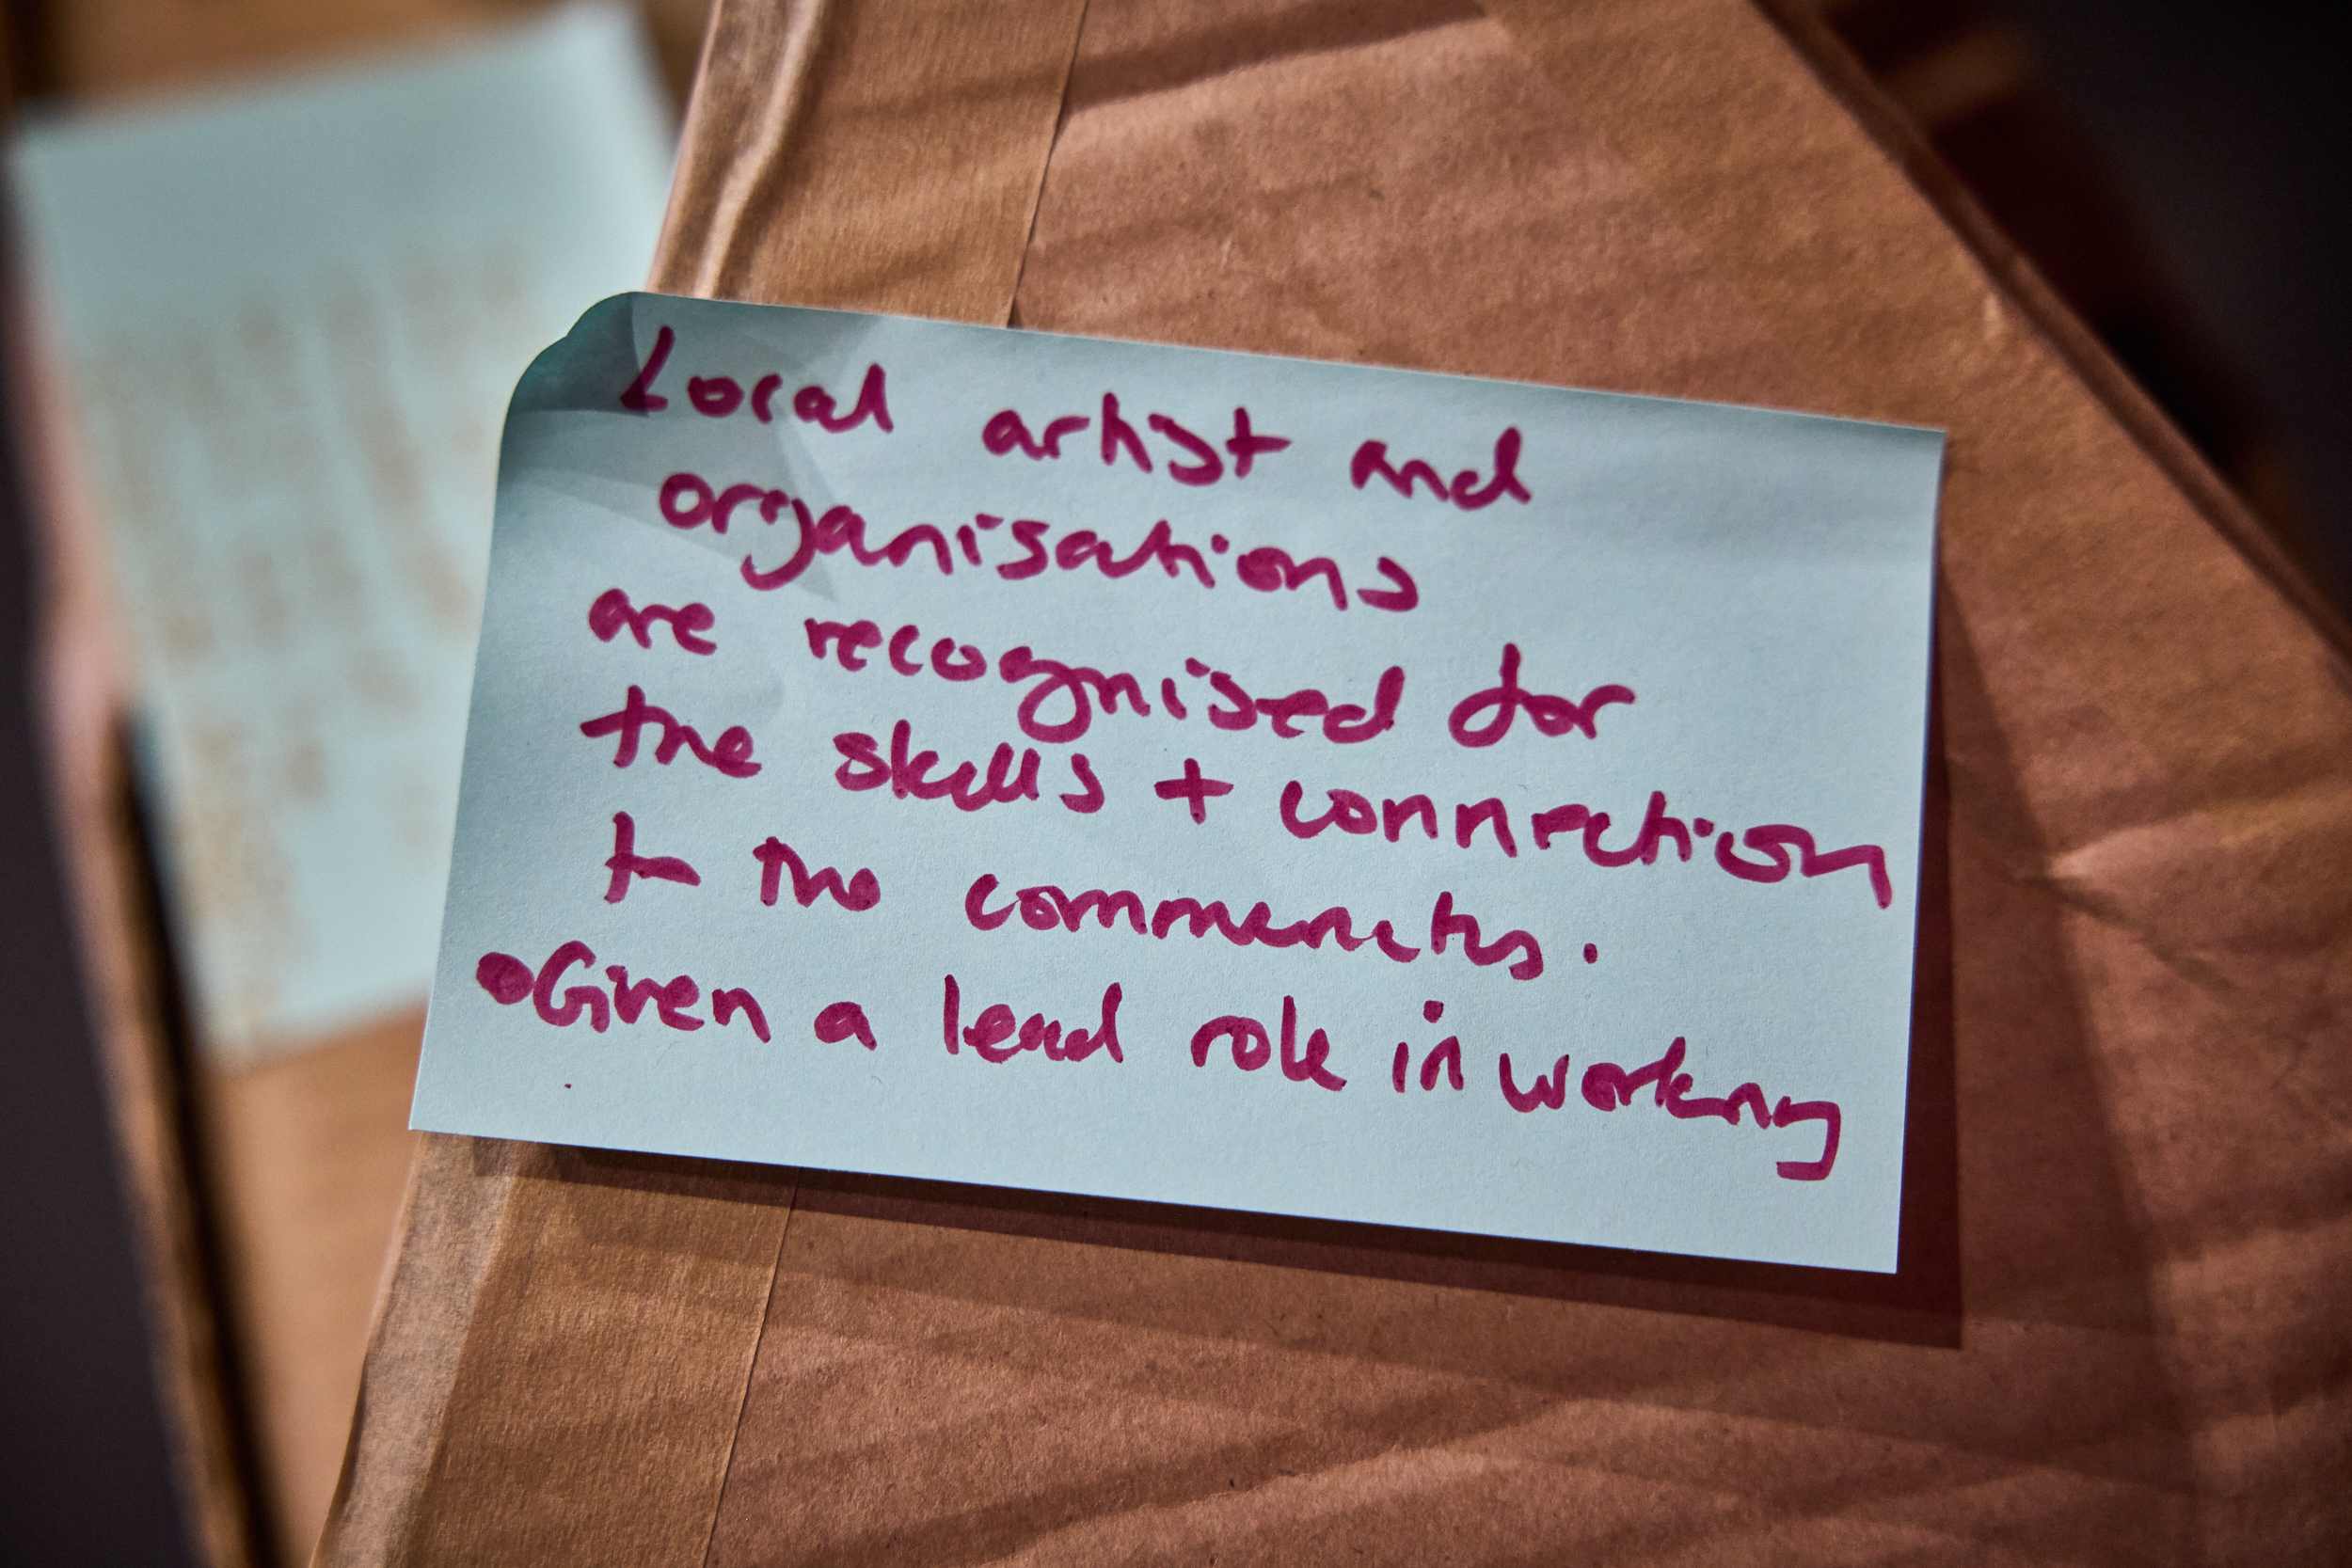 Local artist and
organisations
are recognised for
the skills + connection
to the communities.
•Given a lead role in working